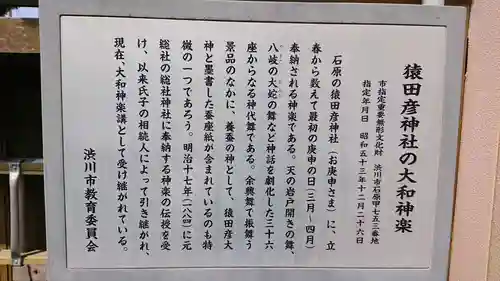 猿田彦神社の大和神楽
市指定重要無形文化財　渋川市石原甲七五三番地
指定年月日　昭和五十三年十二月二十六日
石原の猿田彦神社（お庚申さま）に、立
春から数えて最初の庚申の日（三月～四月）
奉納される神楽である。天の岩戸開きの舞、
八岐の大蛇の舞など神話を劇化した三十六
座からなる神代舞である。余興舞で振舞う
景品のなかに、養蚕の神として、猿田彦大
神と墨書した蚕座紙が含まれているのも特
徴の一つであろう。明治十七年（一八八四）に元
総社の総社神社に奉納する神楽の伝授を受
け、以来氏子の相続人によって引き継がれ、
現在、大和神楽講として受け継がれている。
渋川市教育委員会